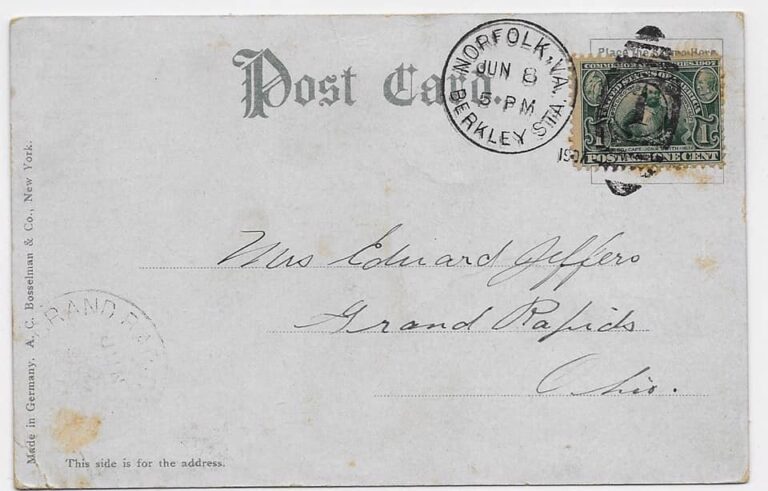 Post Card.
Place the Stamp Here
NORFOLK, VA.
JUN 8
5-PM
BERKLEY STA.
1907
COMMEMORATIVE SERIES 1907
UNITED STATES OF AMERICA
1 1
POSTAGE ONE CENT
Mrs Edward Jeffers
Grand Rapids
Ohio.
GRAND RAP
Made in Germany. A. C. Bosselman & Co., New York.
This side is for the address.